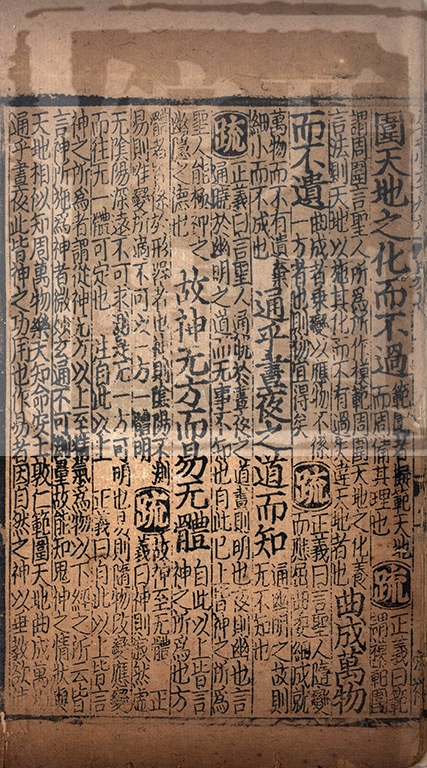 圍天地之化而不過範圍者擬範天地而周備其理也疏正義曰範謂模範圍
謂周圍言聖人所為所作模範周圍天地之化養言法則天地以施其化而不有過失違天地者也曲成萬物
而不遺曲成者乘變以應物不係一方者也則物宜得矣疏正義曰言聖人隨變而應屈曲委細成就
萬物而不有遺棄細小而不成也通乎晝夜之道而知通幽明之故則无不知也
疏正義曰言聖人通曉於晝夜之道晝則明也夜則幽也言通曉於幽明之道而无事不知也自此已上皆神之所為
聖人能極神之幽隱之德也故神无方而易无體自此以上皆言神之所為也方
體者皆係於形器者也神則陰陽不測易則唯變所適不可以一方一體明疏故神至无體 正義曰神則寂然虛
无陰陽深遠不可求難是无一方可明也易則隨物改變應變而往无一體可定也 注自此以上 正義曰自此以上皆言
神之所為者謂從神无方以上至精氣為物以下經之所云皆言神所施為神者微妙玄通不可測量故能知鬼神之情狀與
天地相似知周萬物樂天知命安土敦仁範圍天地曲成萬物通乎晝夜此皆神之功用也作易者因自然之神以垂教欲使